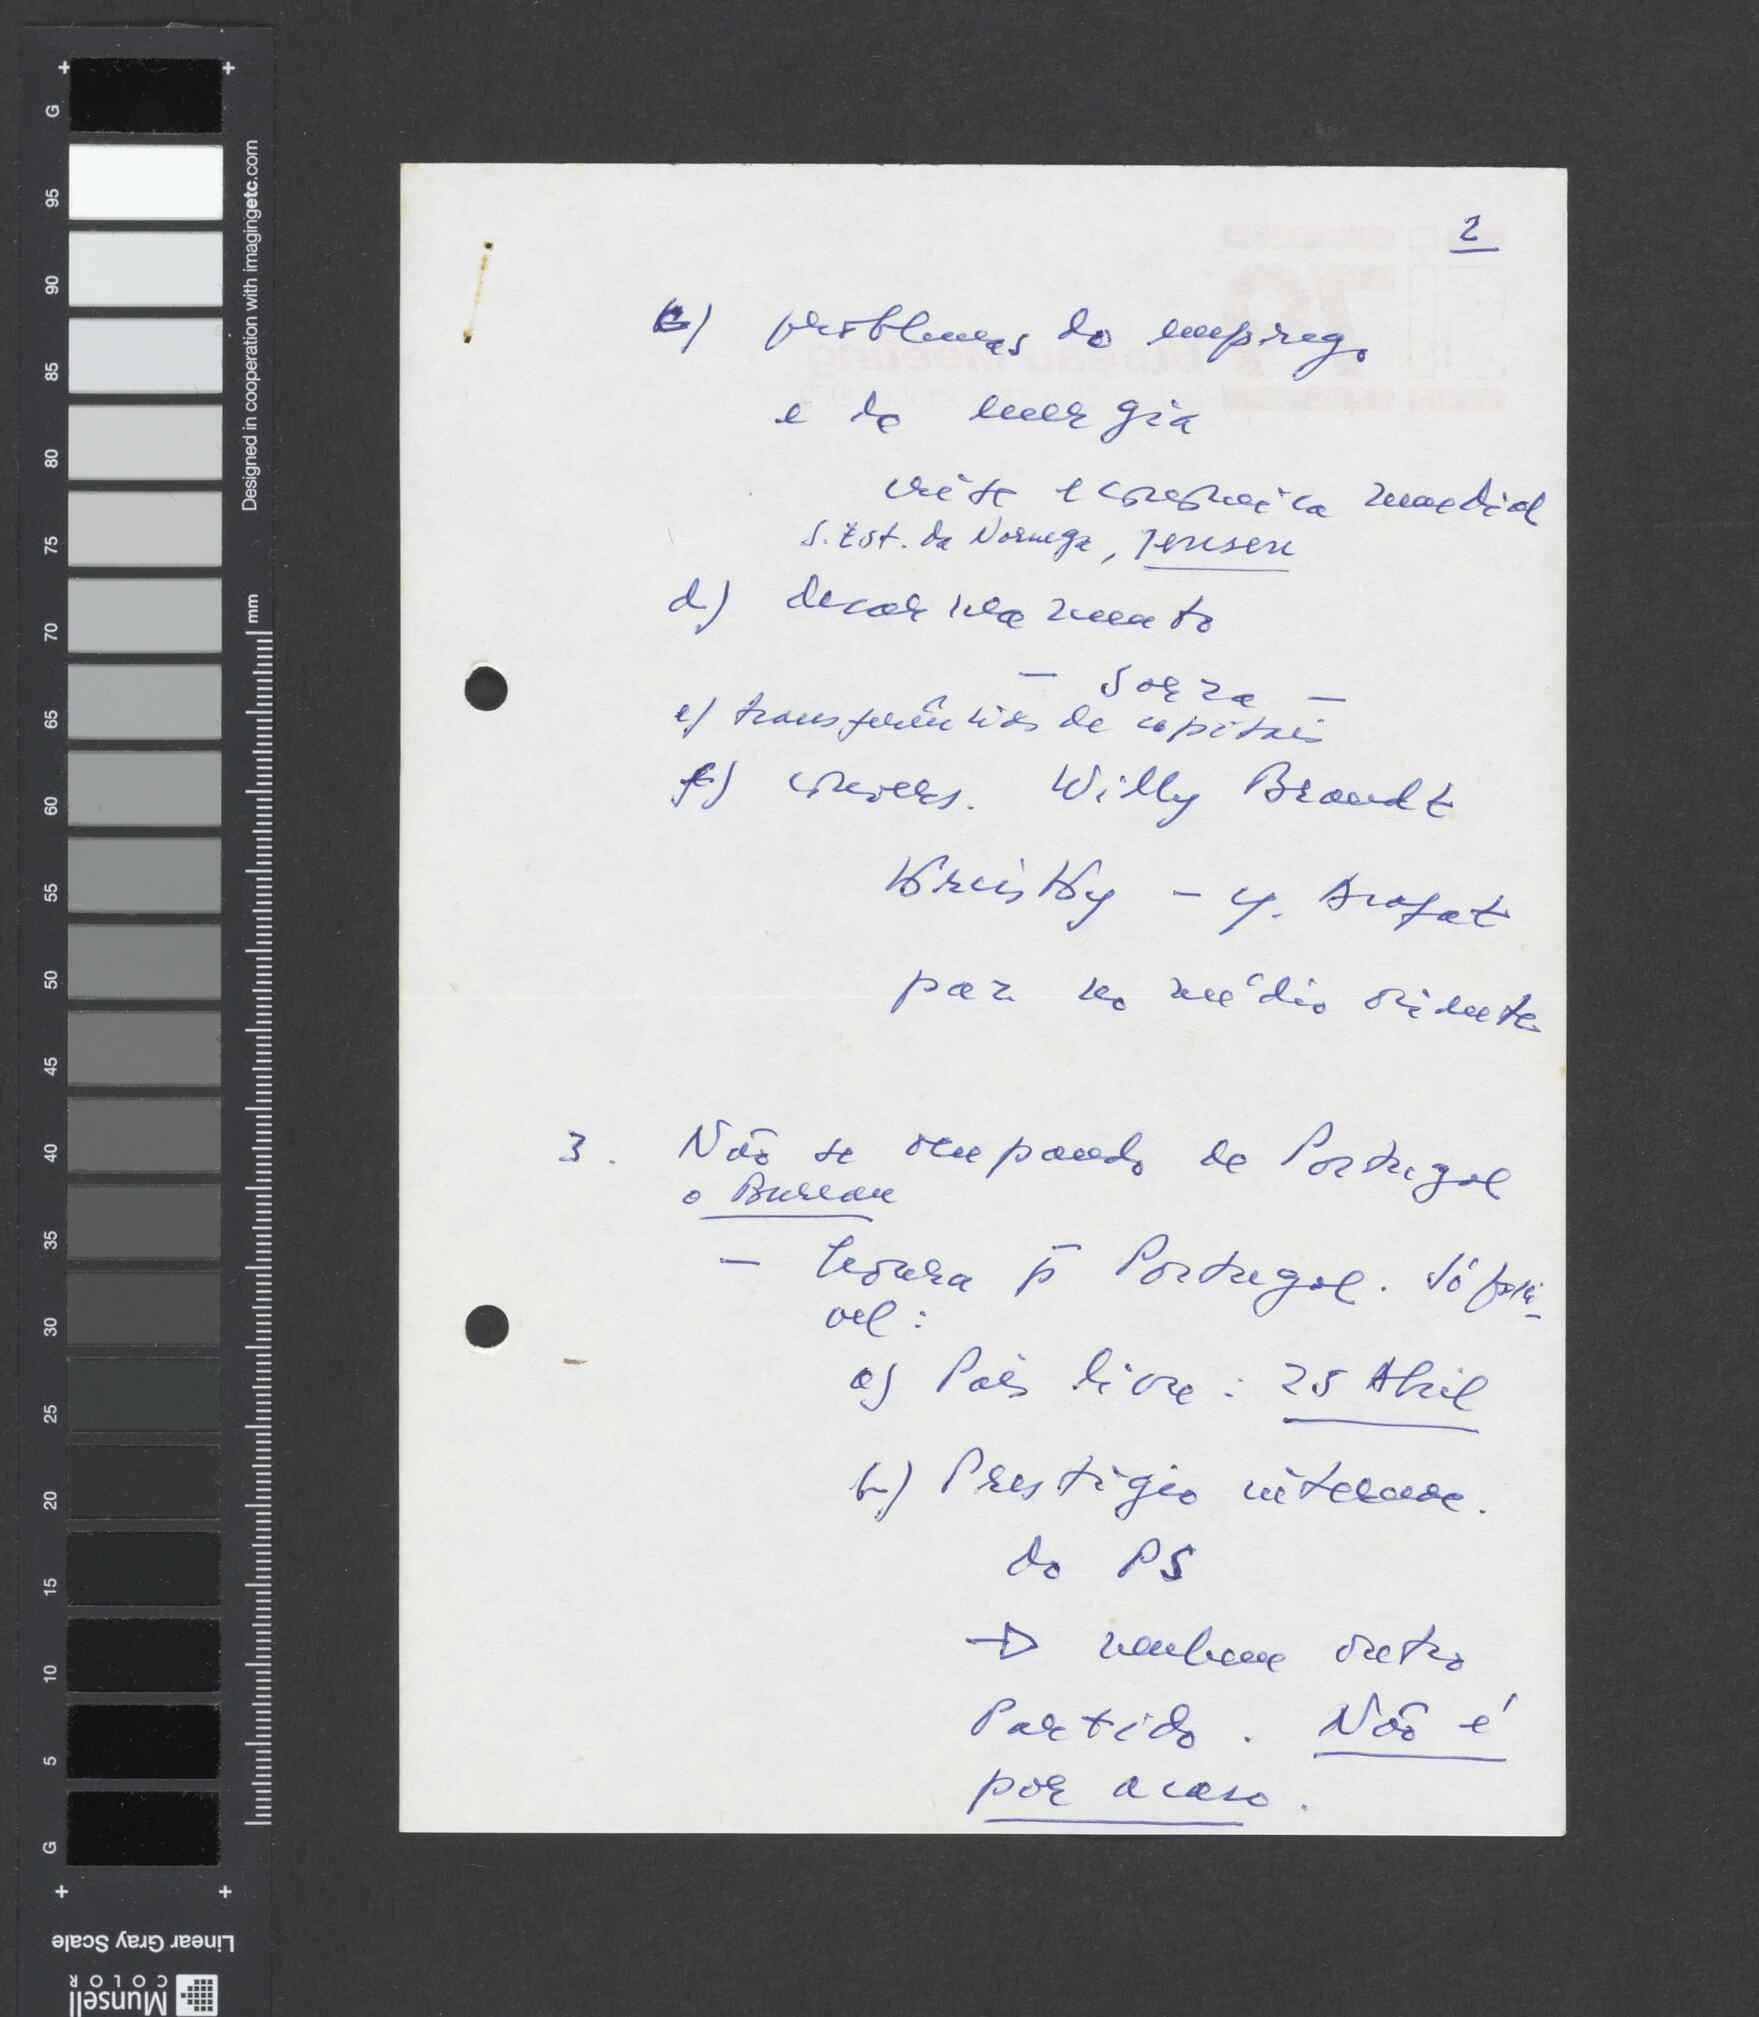 2
c) problemas do emprego
e da energia
crise económica mundial
S. Est. da Noruega, Jensen
d) desarmamento
— Sorsa —
e) transferências de capitais
f) convers. Willy Brandt
Kreisky - Y. Arafat
paz no médio oriente
3. Não se ocupando de Portugal
o Bureau
— honra p Portugal. Só possí-
vel:
a) País livre: 25 Abril
b) Prestígio internac.
do PS
→ nenhum outro
Partido. Não é
por acaso.
G
95
90
85
80
75
70
65
60
55
50
45
40
35
30
25
20
15
10
5
G
Designed in cooperation with imagingetc.com
mm
Linear Gray Scale
Munsell
COLOR